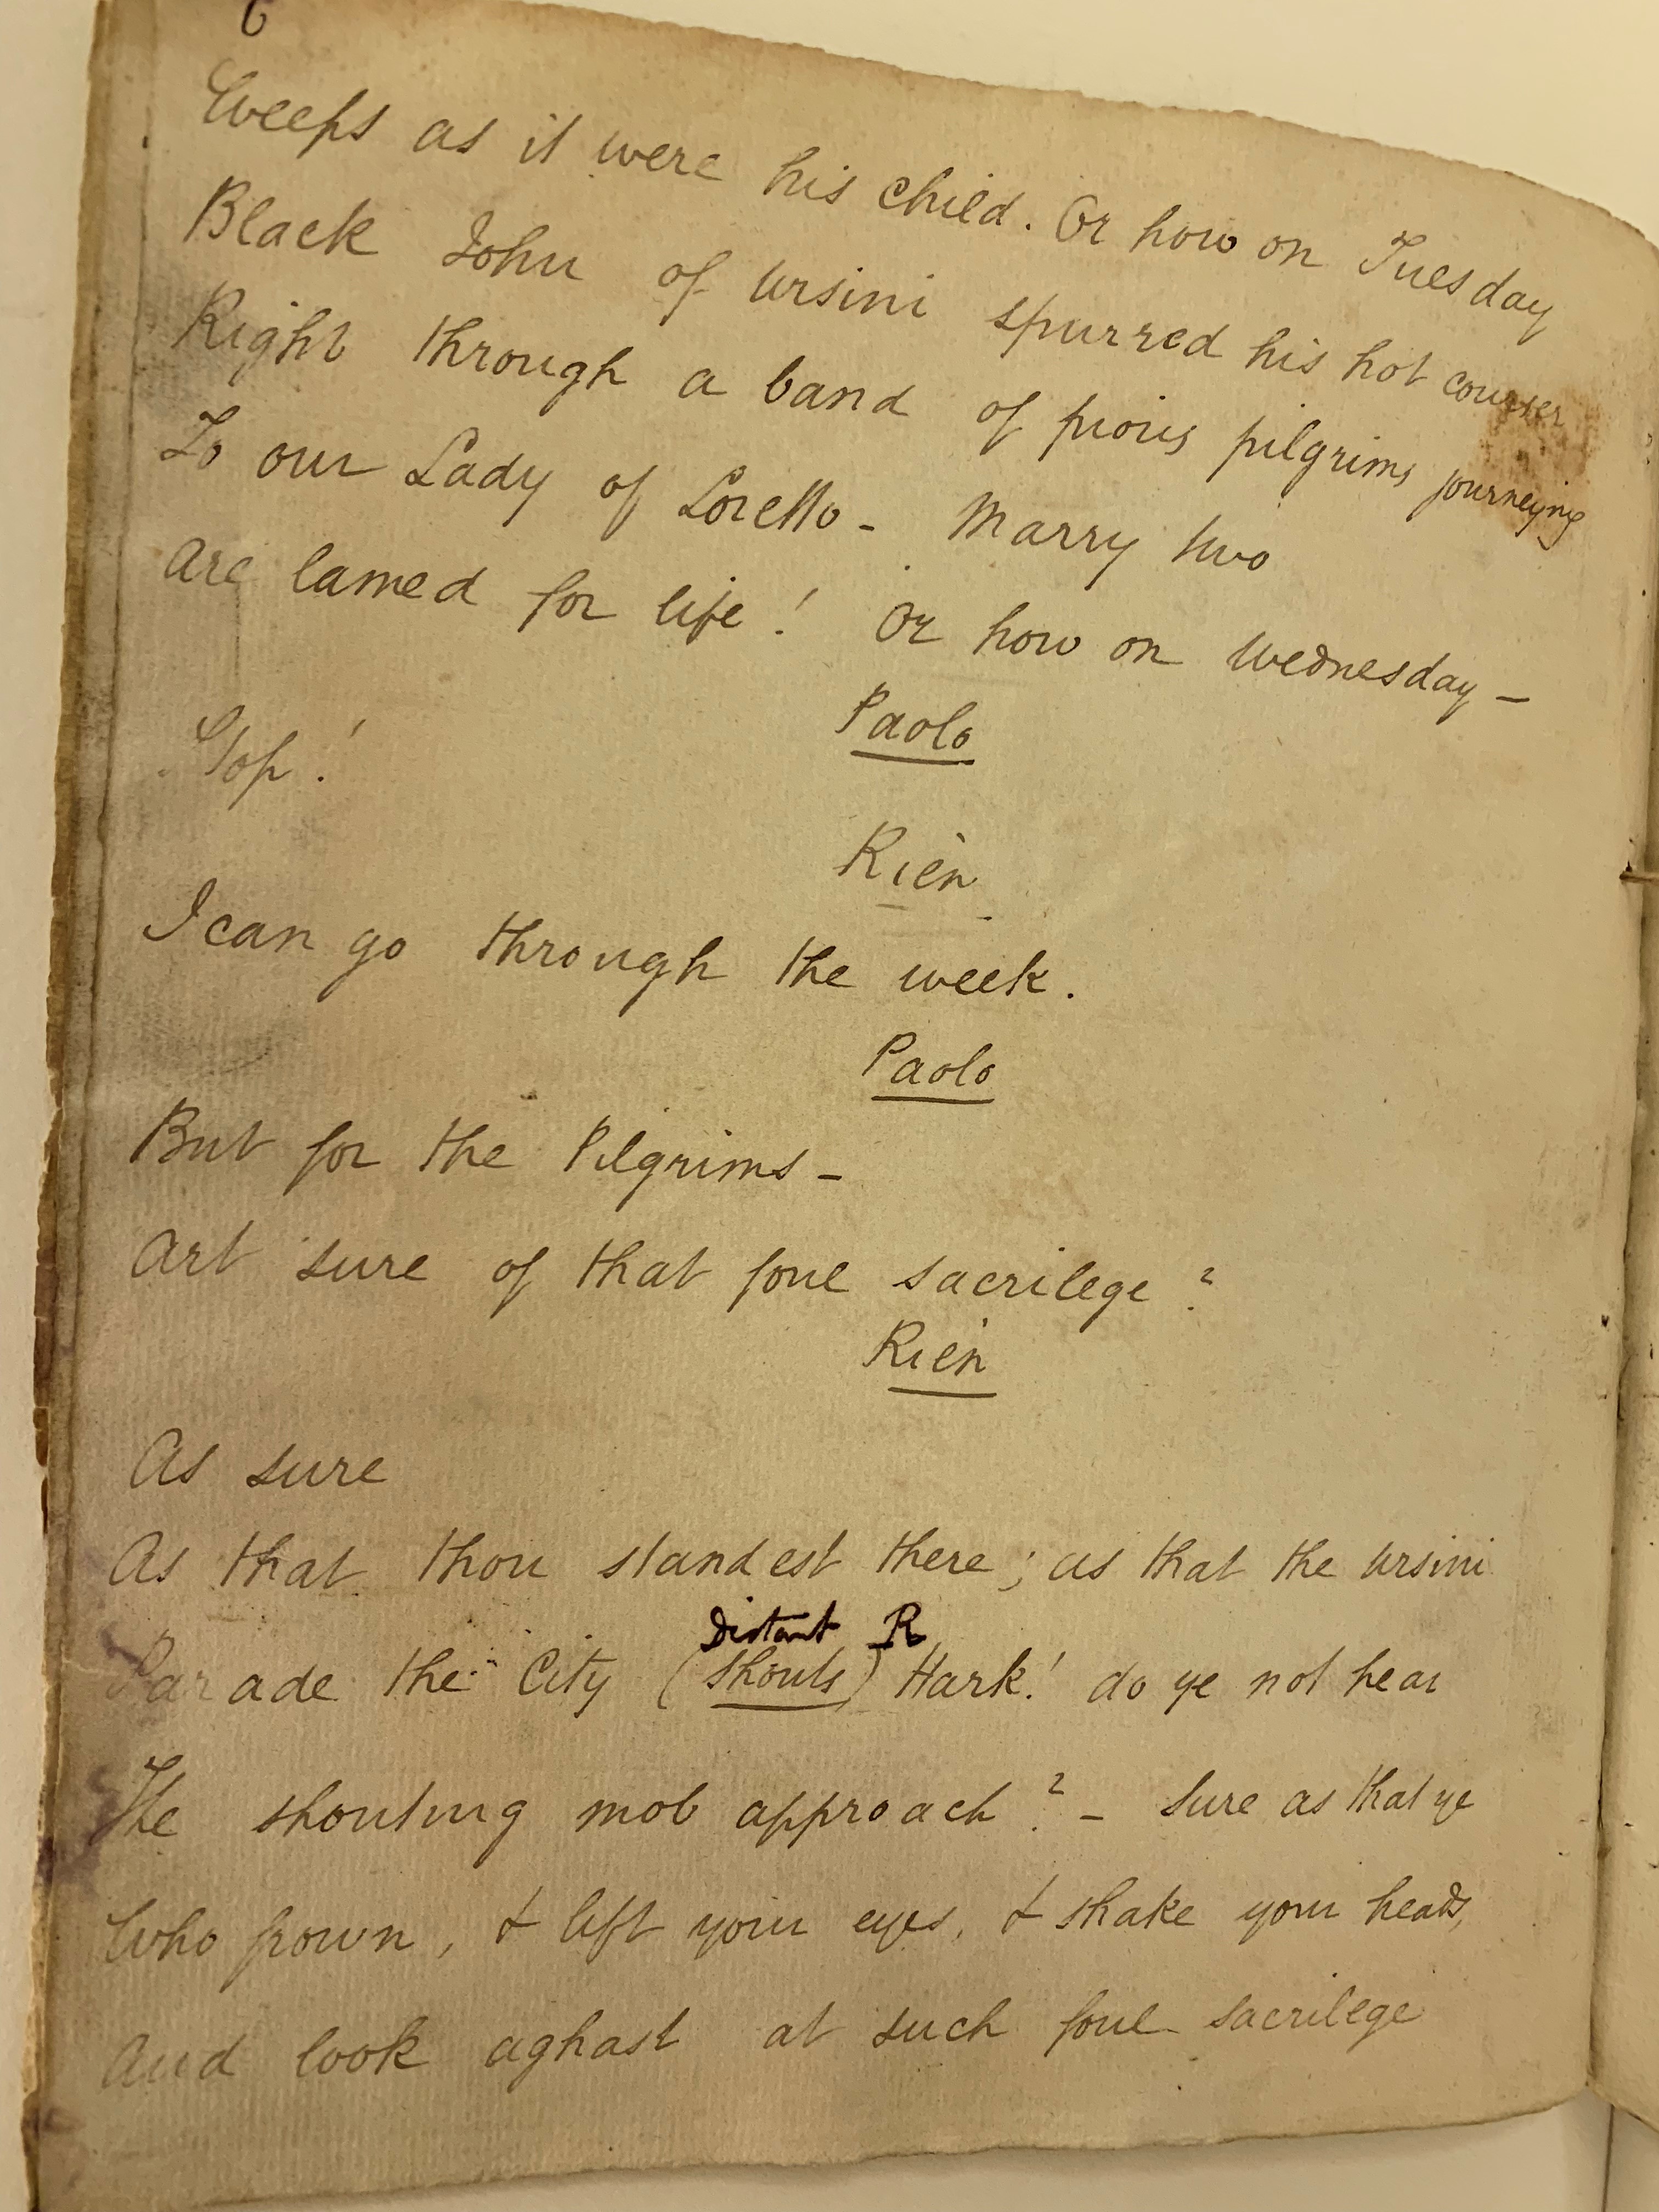 6
Weeps as it were his child. Or how on Tuesday
Black John of Ursini spurred his hot courser
Right through a band of pious pilgrims journeying
To our Lady of Loretto - Marry two
Are lamed for life! Or how on Wednesday -
Paolo
Stop!
Rien
I can go through the week.
Paolo
But for the Pilgrims -
Art sure of that foul sacrilege?
Rien
As sure
As that thou standest there; as that the Ursini
Distant R
Parade the City (shouts) Hark! do ye not hear
The shouting mob approach? - Sure as that ye
Who frown, & lift your eyes, & shake your heads,
And look aghast at such foul sacrilege